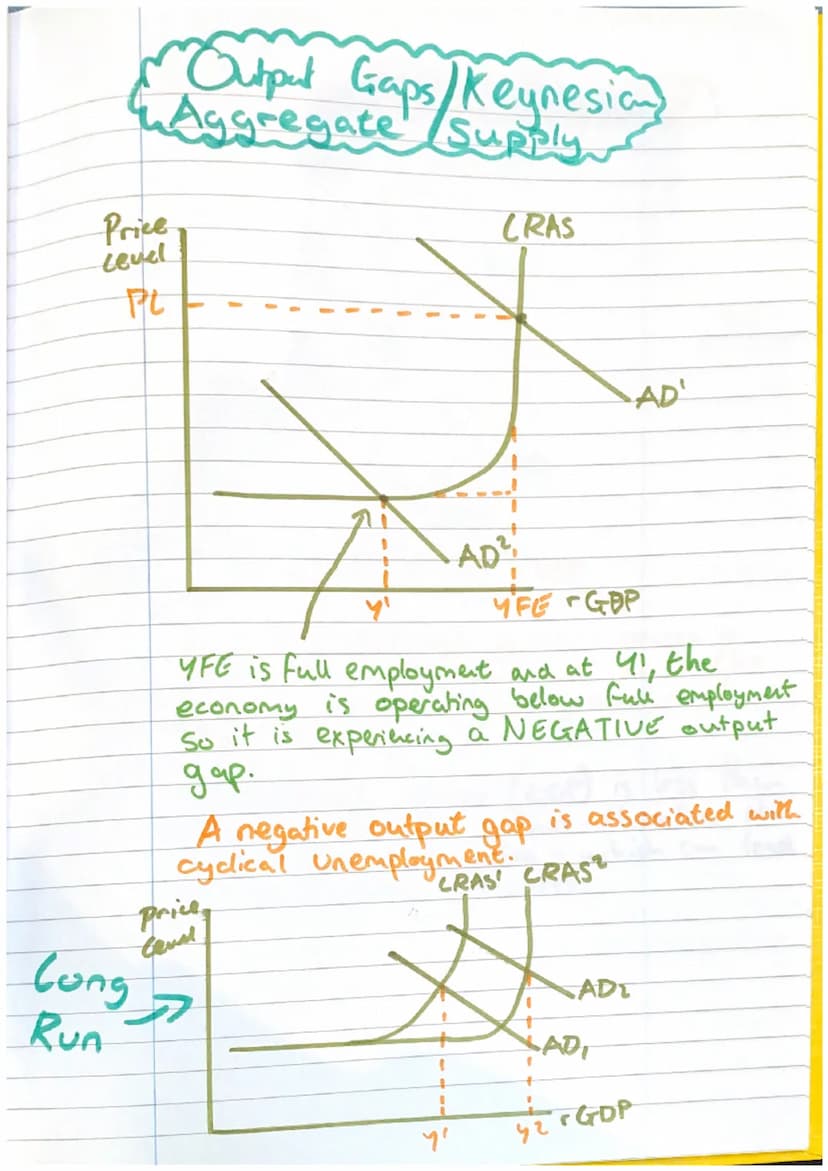 Output Gaps/Keynesian
Aggregate /Supply
Price
Level
LRAS
PL
AD¹
AD²
Y¹ YFE rGDP
YFE is full employment and at Y1, the
economy is operating below full employment
so it is experiencing a NEGATIVE output
gap.
A negative output gap is associated with
cyclical unemployment.
LRAS¹ LRAS²
Price
Level
Long
Run
AD2
AD1
Y¹ Y2 rGDP